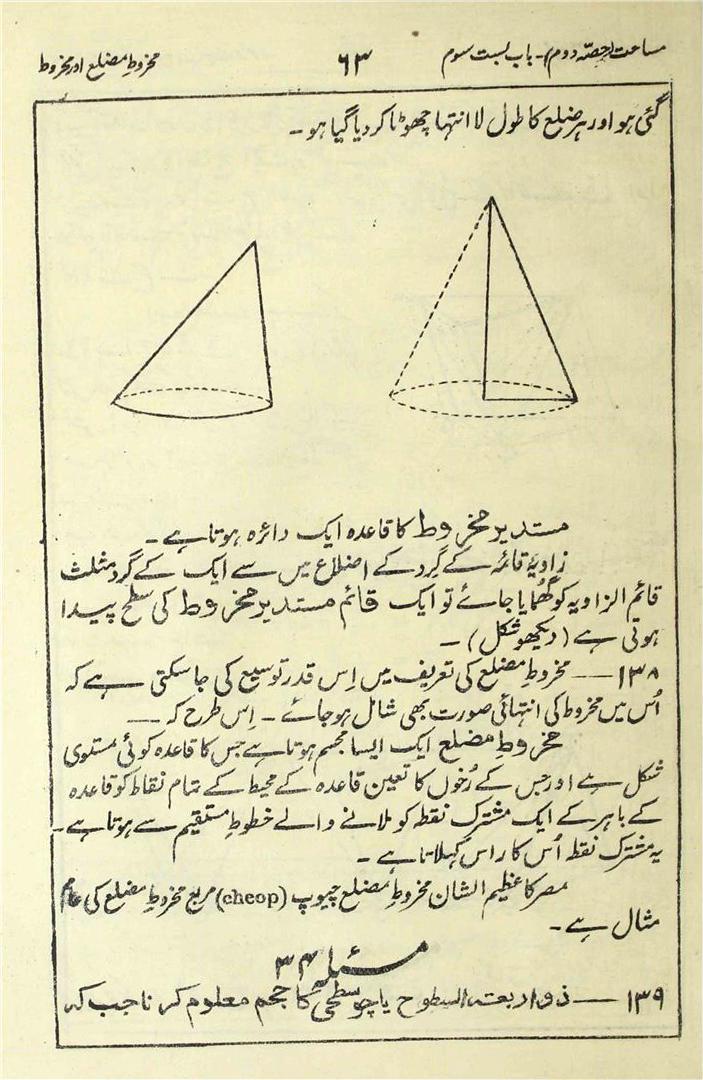 مساحت (حصّہ دوم)۔ باب بست سوم
۶۳
مخروطِ مضلع اور مخروط
گئی ہو اور ہر ضلع کا طول لا انتہا چھوٹا کر دیا گیا ہو ۔
مستدیر مخروط کا قاعدہ ایک دائرہ ہوتا ہے ۔
زاویۂ قائمہ کے گرد کے اضلاع میں سے ایک کے گرد مثلث
قائم الزاویہ کو گھُمایا جائے تو ایک قائم مستدیر مخروط کی سطح پیدا
ہوتی ہے (دیکھو شکل) ۔
۱۳۸ — مخروطِ مضلع کی تعریف میں اِس قدر توسیع کی جا سکتی ہے کہ
اُس میں مخروط کی انتہائی صورت بھی شامل ہو جائے ۔ اِس طرح کہ —
مخروطِ مضلع ایک ایسا مجسم ہوتا ہے جس کا قاعدہ کوئی مستوی
شکل ہے اور جس کے رُخوں کا تعین قاعدہ کے محیط کے تمام نقاط کو قاعدہ
کے باہر کے ایک مشترک نقطہ کو ملانے والے خطوطِ مستقیم سے ہوتا ہے ۔
یہ مشترک نقطہ اُس کا راس کہلاتا ہے ۔
مصر کا عظیم الشان مخروطِ مضلع چیوپ (cheop) مربع مخروطِ مضلع کی عام
مثال ہے ۔
مسئلہ ۳۴
۱۳۹ — ذو اربعۃ السطوح یا چو سطحی کا حجم معلوم کرنا جب کہ